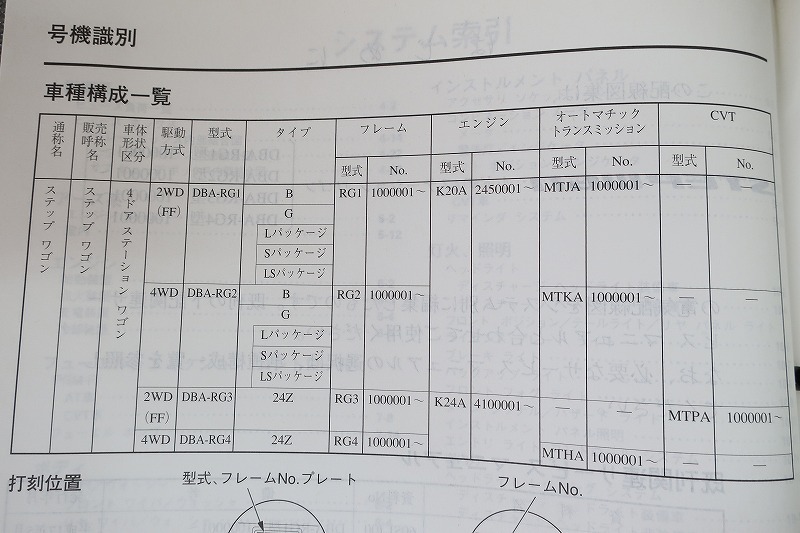 号機識別
車種構成一覧
通称名 販売呼称名 車体形状区分 駆動方式 型式 タイプ フレーム エンジン オートマチックトランスミッション CVT
型式 No. 型式 No. 型式 No. 型式 No.
ステップ ワゴン ステップ ワゴン 4ドア ステーション ワゴン 2WD (FF) DBA-RG1 B RG1 1000001～ K20A 2450001～ MTJA 1000001～
G
Lパッケージ
Sパッケージ
LSパッケージ
4WD DBA-RG2 B RG2 1000001～ MTKA 1000001～ — —
G
Lパッケージ
Sパッケージ
LSパッケージ
2WD (FF) DBA-RG3 24Z RG3 1000001～ K24A 4100001～ — — MTPA 1000001～
4WD DBA-RG4 24Z RG4 1000001～ MTHA 1000001～ — —
打刻位置
型式、フレームNo. プレート
フレームNo.